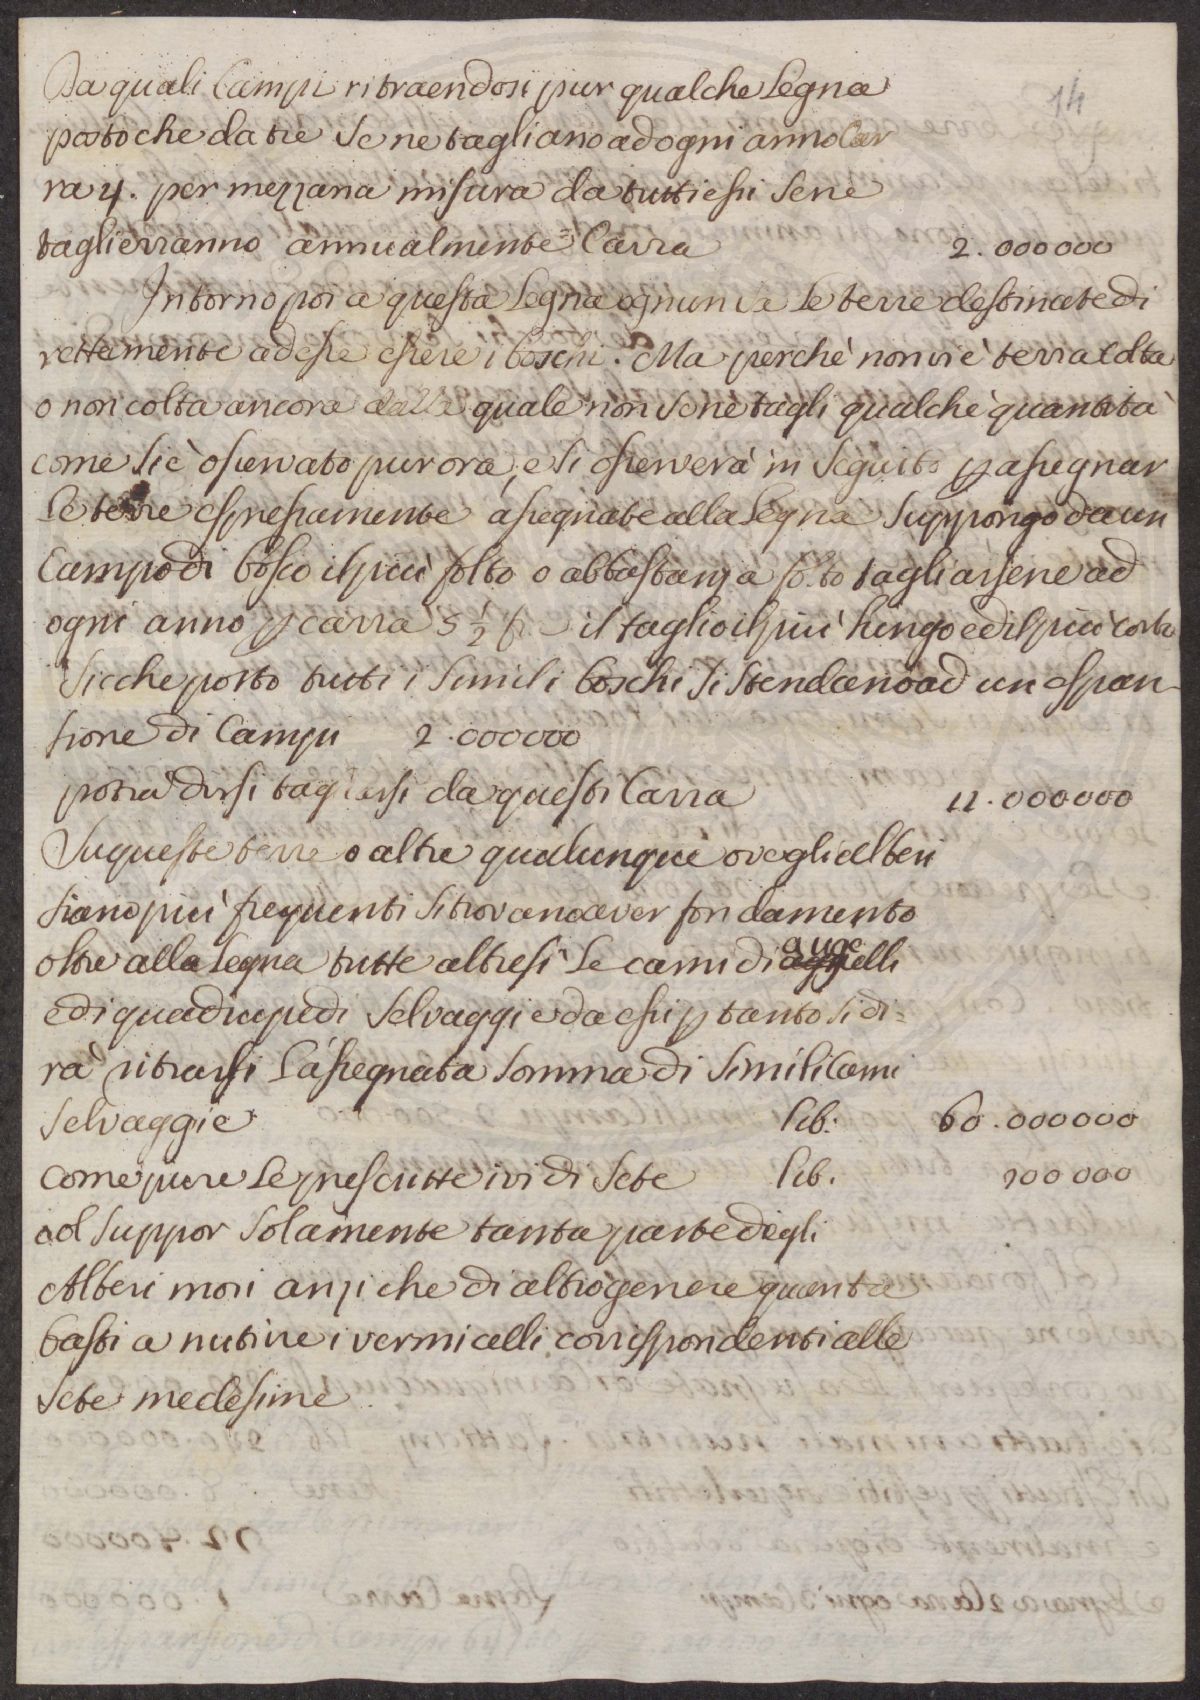 14
Da quali Campi ritraendosi pur qualche Legna
posto che da tre se ne tagliano ad ogni anno Car
ra 4. per mezzana misura da tutti essi se ne
taglierranno annualmente Carra 2.000000
Intorno poi a questa Legna ognun sa le terre destinate di
rettamente ad essere i boschi. Ma perchè non vi è terra colta
o non colta ancora dalla quale non se ne tagli qualche quantità
come si è osservato pur ora, e si osserverà in seguito p assegnar
le terre espressamente assegnate alla Legna suppongo da un
Campo di bosco il più folto o abbastanza folto tagliarsene ad
ogni anno p carra 5 1/2 il taglio il più lungo ed il più corto
Sicche posto tutti i simili boschi si stendano ad un espan-
sione di Campi 2.000000
potrà dirsi tagliarsi da questi Carra 11.000000
Su queste terre o altre qualunque ove gli alberi
siano più frequenti si trovano aver fondamento
oltre alla Legna tutte altresì le carni di augelli
e di quadrupedi selvaggi e da essi p tanto si di=
rà ritrarsi l'assegnata somma di simili Carni
selvaggie Lib: 60.000000
come pure le prescritte ivi di sete Lib. 200000
ad suppor solamente tanta parte degli
Alberi mori anzi che di altro genere quanta
basti a nutrire i vermicelli corrispondenti alle
sete medesime